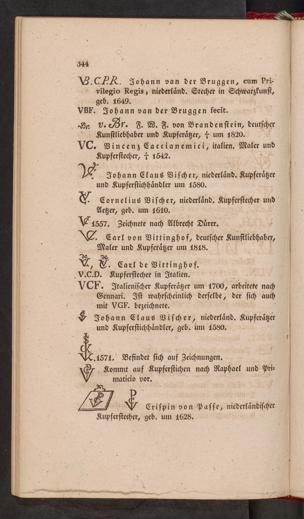 344
V.B.C.P.R. Johann van der Bruggen, cum Pri-
vilegio Regis, niederländ. Stecher in Schwarzkunst,
geb. 1649.
VBF. Johann van der Bruggen fecit.
v. Br. F. W. F. von Brandenstein, deutscher
Kunstliebhaber und Kupferätzer, † um 1820.
VC. Vincenz Caccianemici, italien. Maler und
Kupferstecher, † 1542.
Johann Claus Vischer, niederländ. Kupferätzer
und Kupferstichhändler um 1580.
Cornelius Vischer, niederländ. Kupferstecher und
Aetzer, geb. um 1610.
1557. Zeichnete nach Albrecht Dürer.
Carl von Vittinghof, deutscher Kunstliebhaber,
Maler und Kupferätzer um 1818.
Carl de Vittinghof.
V.C.D. Kupferstecher in Italien.
VCF. Italienischer Kupferätzer um 1700, arbeitete nach
Gennari. Ist wahrscheinlich derselbe, der sich auch
mit VGF. bezeichnete.
Johann Claus Vischer, niederländ. Kupferätzer
und Kupferstichhändler, geb. um 1580.
1571. Befindet sich auf Zeichnungen.
Kommt auf Kupferstichen nach Raphael und Pri-
maticio vor.
Crispin von Passe, niederländischer
Kupferstecher, geb. um 1628.